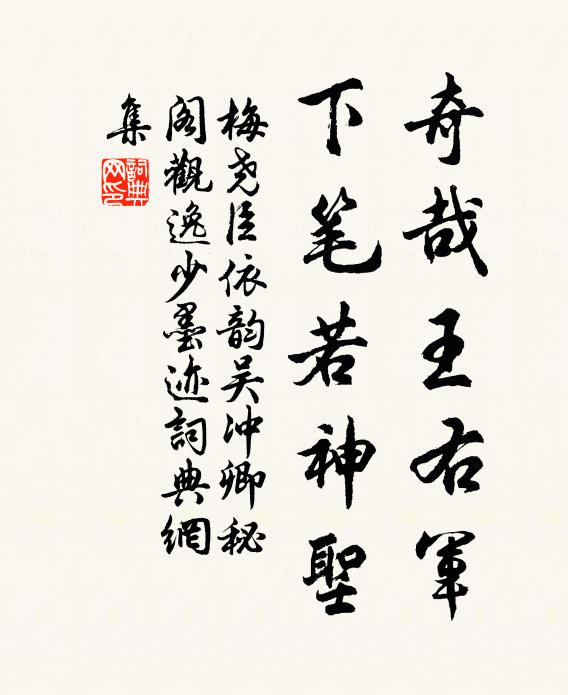 奇哉王右軍
下笔若神聖
梅尧臣依韵吴冲卿秘
阁觀逸少墨迹詞典網
集
詞典
网印